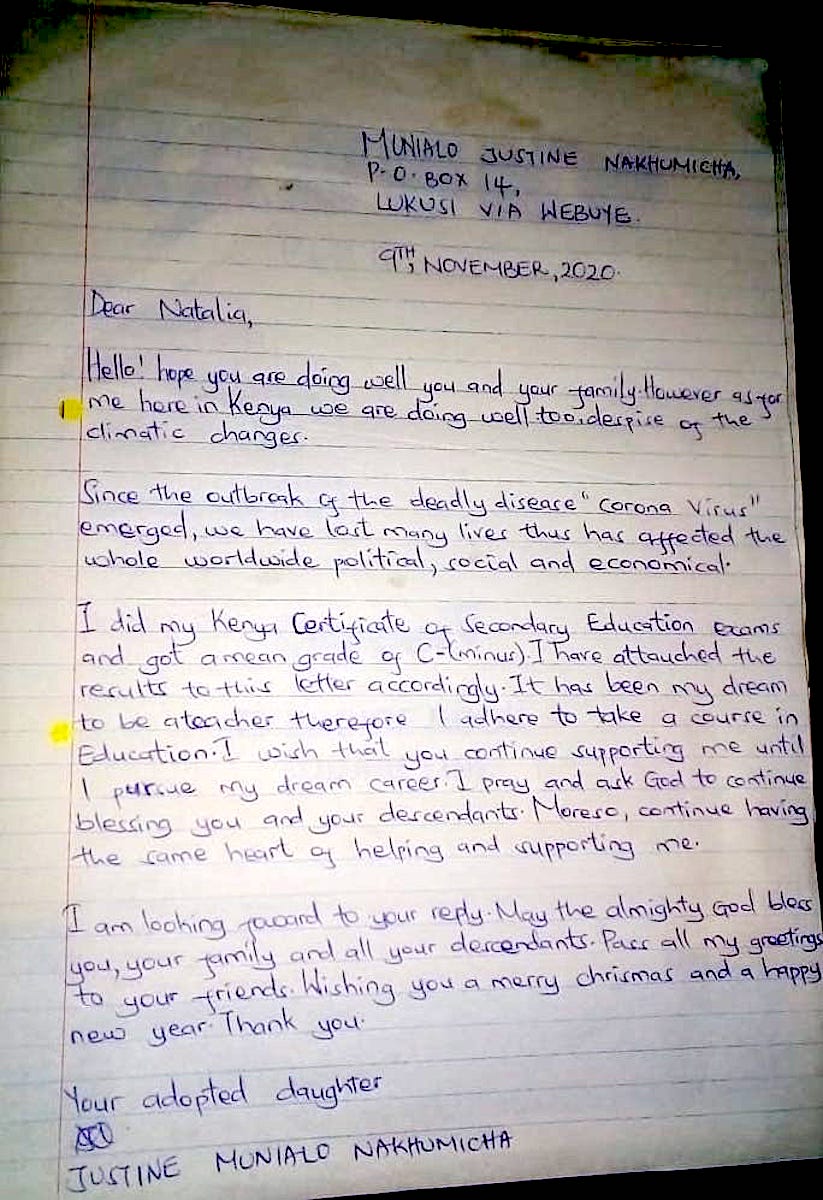 MUNIALO JUSTINE NAKHUMICHA,
P.O. BOX 14,
LUKUSI VIA WEBUYE.
9TH, NOVEMBER, 2020.
Dear Natalia,
Hello! hope you are doing well you and your family. However as for
me here in Kenya we are doing well too, despise of the
climatic changes.
Since the outbreak of the deadly disease "Corona Virus"
emerged, we have lost many lives thus has affected the
whole worldwide political, social and economical.
I did my Kenya Certificate of Secondary Education exams
and got a mean grade of C-(minus). I have attauched the
results to this letter accordingly. It has been my dream
to be a teacher therefore I adhere to take a course in
Education. I wish that you continue supporting me until
I pursue my dream career. I pray and ask God to continue
blessing you and your descendants. Moreso, continue having
the same heart of helping and supporting me.
I am looking foward to your reply. May the almighty God bless
you, your family and all your descendants. Pass all my greetings
to your friends. Wishing you a merry chrismas and a happy
new year. Thank you.
Your adopted daughter
JUSTINE MUNIALO NAKHUMICHA